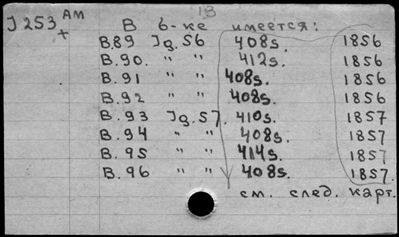 J 253 AM + В б-ке имеется:
B.89 Jg.56 408s. 1856
B.90. " " 412s. 1856
B.91 " " 408s. 1856
B.92 " " 408s. 1856
B.93 Jg.57. 410s. 1857
B.94 " " 408s. 1857
B.95 " " 414s. 1857
B.96 " " 408s. 1857.
см. след. карт.